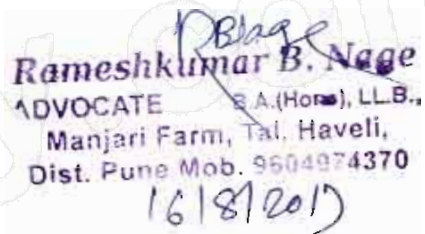 Rameshkumar B. Nage
ADVOCATE B.A.(Hons), LL.B.,
Manjari Farm, Tal. Haveli,
Dist. Pune Mob. 9604974370
16/8/2017